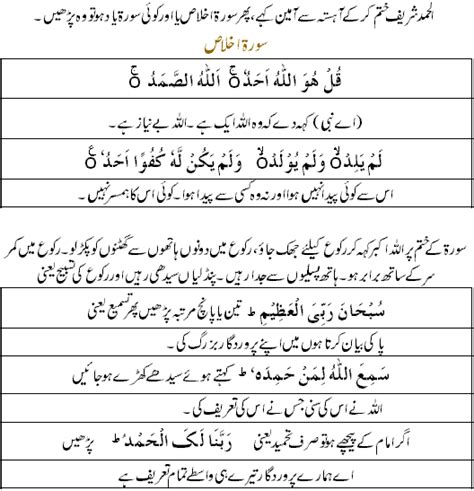 الحمد شریف ختم کر کے آہستہ سے آمین کہے، پھر سورۃ اخلاص یا اور کوئی سورۃ یاد ہو تو وہ پڑھیں۔
سورۃ اخلاص
قُلْ هُوَ اللّٰهُ اَحَدٌ ۚ اَللّٰهُ الصَّمَدُ ۚ
(اے نبی) کہہ دے کہ وہ اللہ ایک ہے۔ اللہ بے نیاز ہے۔
لَمْ يَلِدْ ۙ وَلَمْ يُوْلَدْ ۙ وَلَمْ يَكُنْ لَّهٗ كُفُوًا اَحَدٌ ۚ
اس سے کوئی پیدا نہیں ہوا اور نہ وہ کسی سے پیدا ہوا۔ کوئی اس کا ہمسر نہیں۔
سورۃ کے ختم پر اللہ اکبر کہہ کر رکوع کیلئے جھک جاؤ، رکوع میں دونوں ہاتھوں سے گھٹنوں کو پکڑ لو۔ رکوع میں کمر
سر کے ساتھ برابر ہو۔ ہاتھ پسلیوں سے جدا رہیں۔ پنڈلیاں سیدھی رہیں اور رکوع کی تسبیح یعنی
سُبْحَانَ رَبِّيَ الْعَظِيْمِ ط تین یا پانچ مرتبہ پڑھیں پھر تسمیع یعنی
پاکی بیان کرتا ہوں میں اپنے پروردگار بزرگ کی۔
سَمِعَ اللّٰهُ لِمَنْ حَمِدَهٗ ط کہتے ہوئے سیدھے کھڑے ہو جائیں
اللہ نے اس کی سنی جس نے اس کی تعریف کی۔
اگر امام کے پیچھے ہو تو صرف تحمید یعنی رَبَّنَا لَکَ الْحَمْدُ ط پڑھیں
اے ہمارے پروردگار تیرے ہی واسطے تمام تعریف ہے